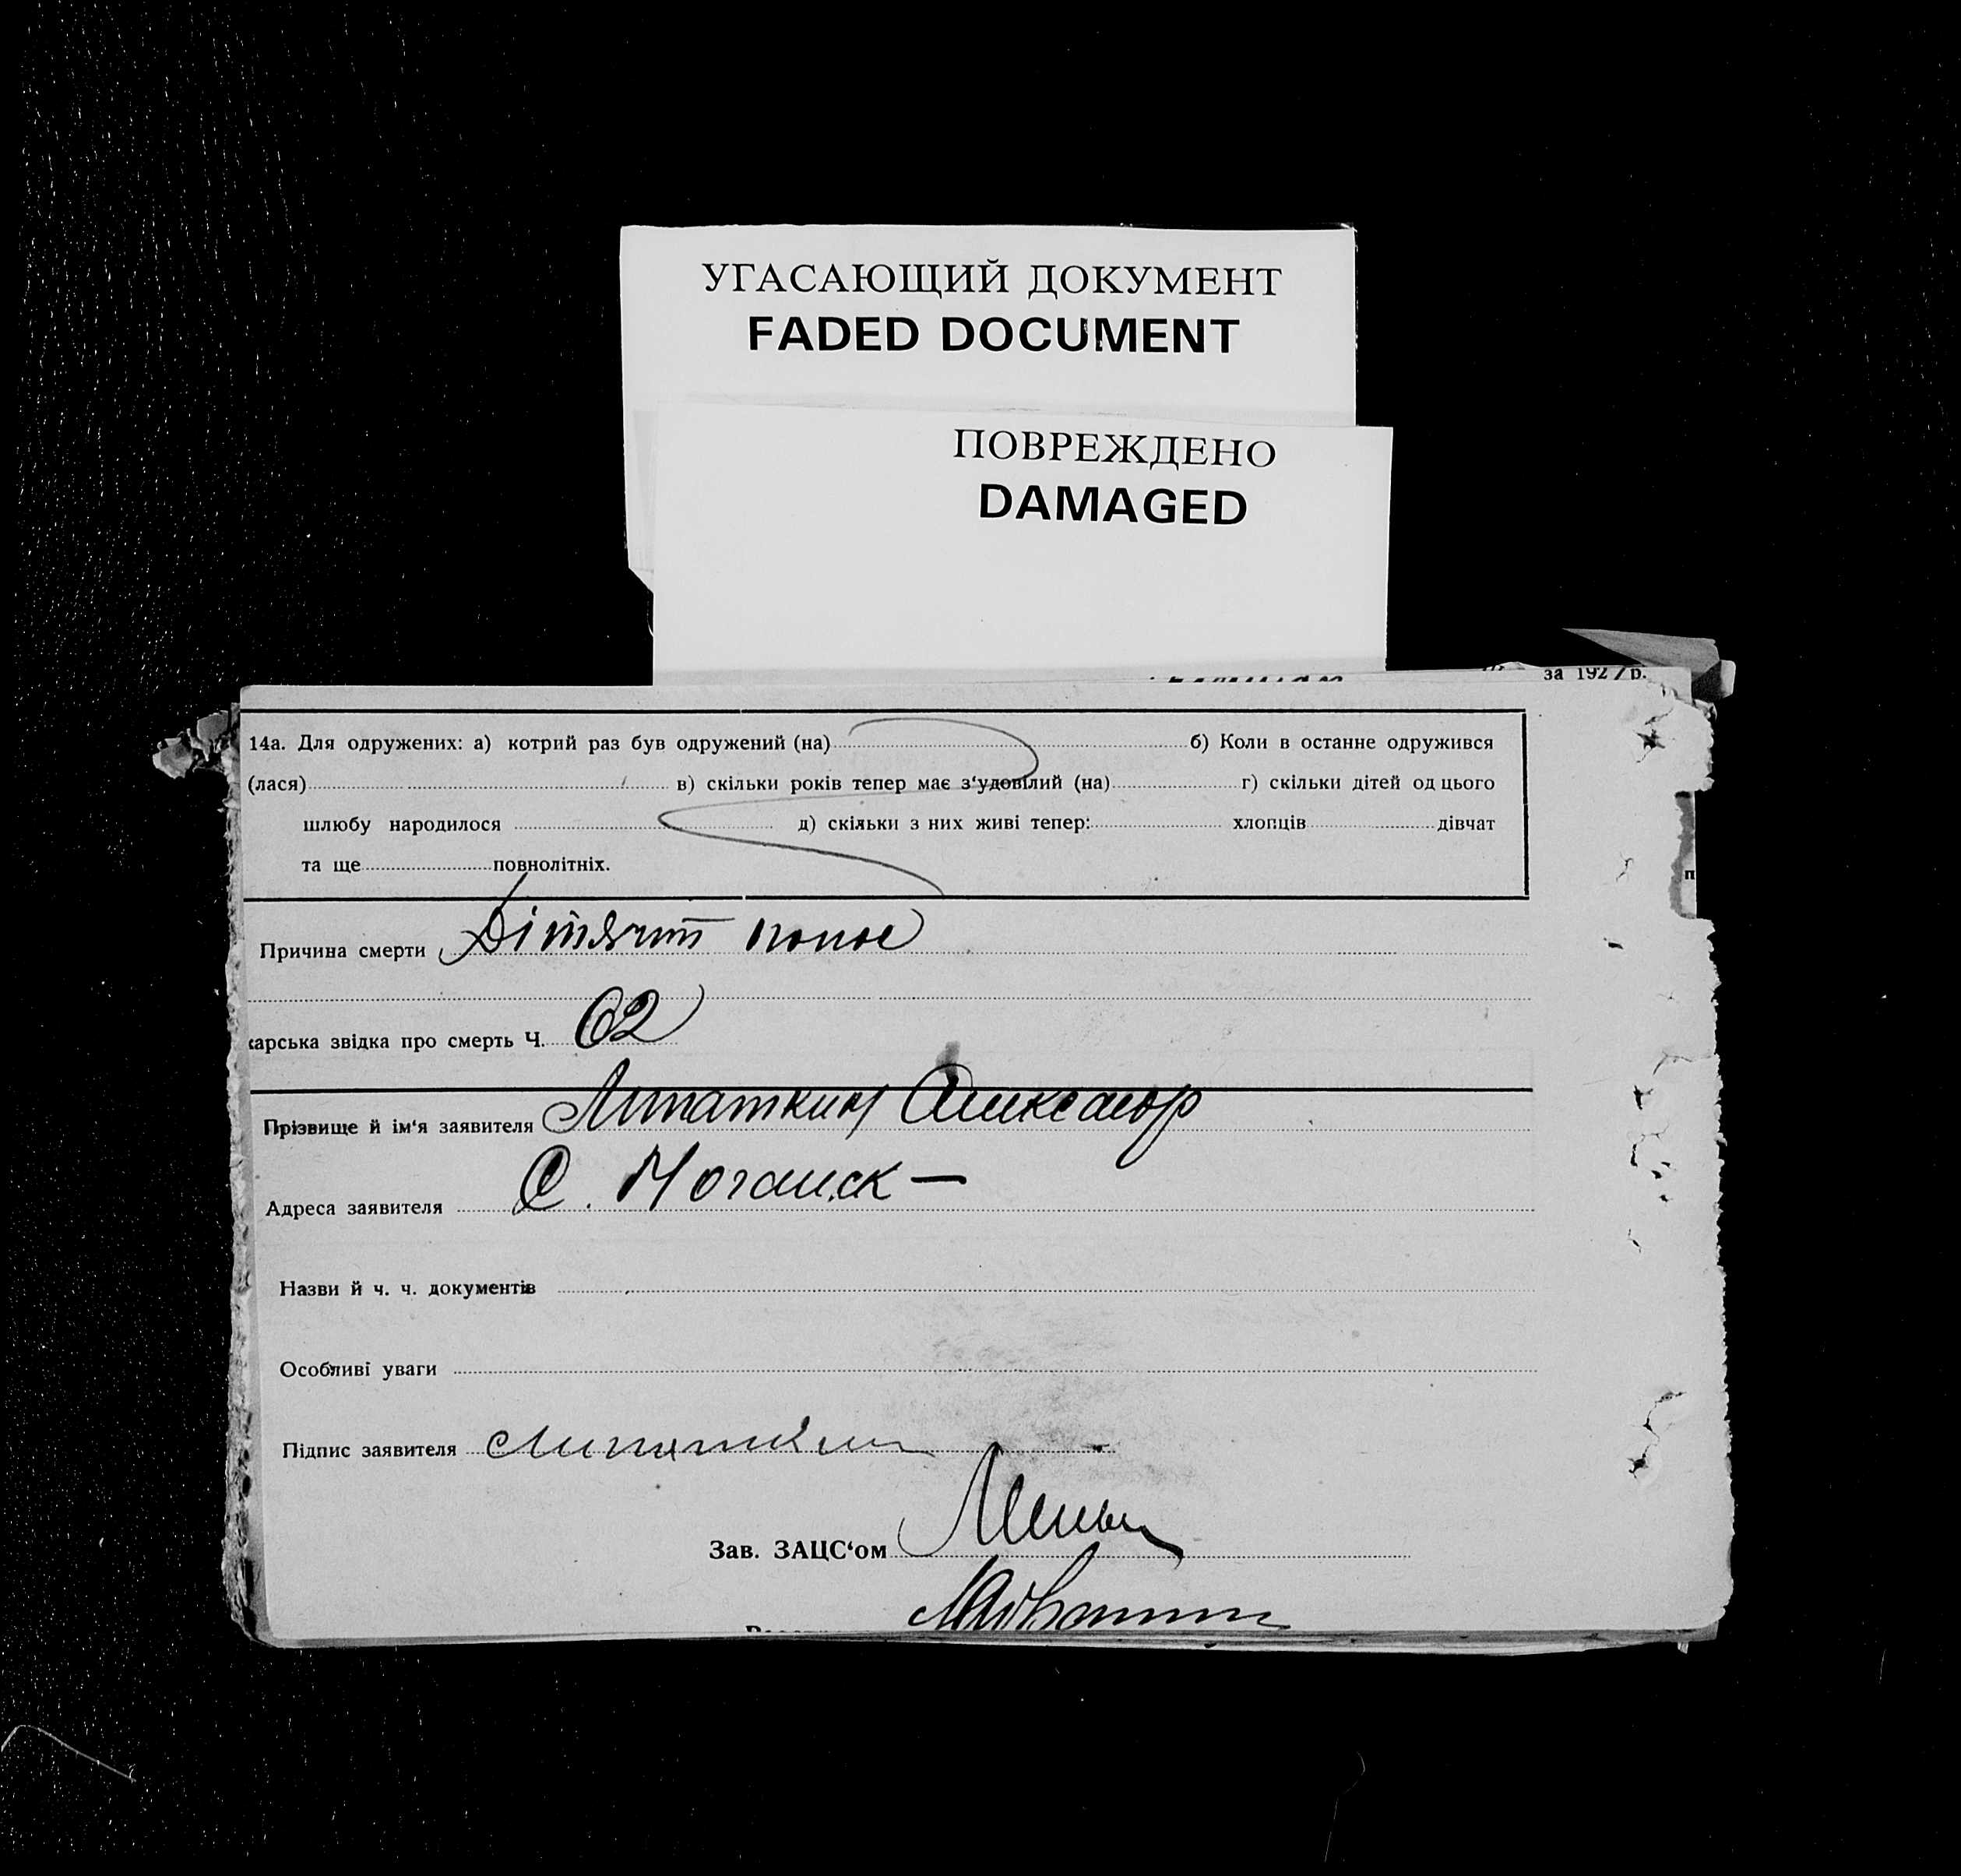 УГАСАЮЩИЙ ДОКУМЕНТ
FADED DOCUMENT
ПОВРЕЖДЕНО
DAMAGED
за 1927 р.
14а. Для одружених: а) котрий раз був одружений (на) б) Коли в останне одружився
(лася) в) скільки років тепер має з‘удовілий (на) г) скільки дітей од цього
шлюбу народилося д) скільки з них живі тепер: хлопців дівчат
та ще повнолітніх.
Причина смерти Дітячий понос
карська звідка про смерть Ч. 62
Прізвище й ім‘я заявителя Липаткин Александр
Адреса заявителя С. Ногайск —
Назви й ч. ч. документів
Особливі уваги
Підпис заявителя Липаткин
Зав. ЗАЦС‘ом